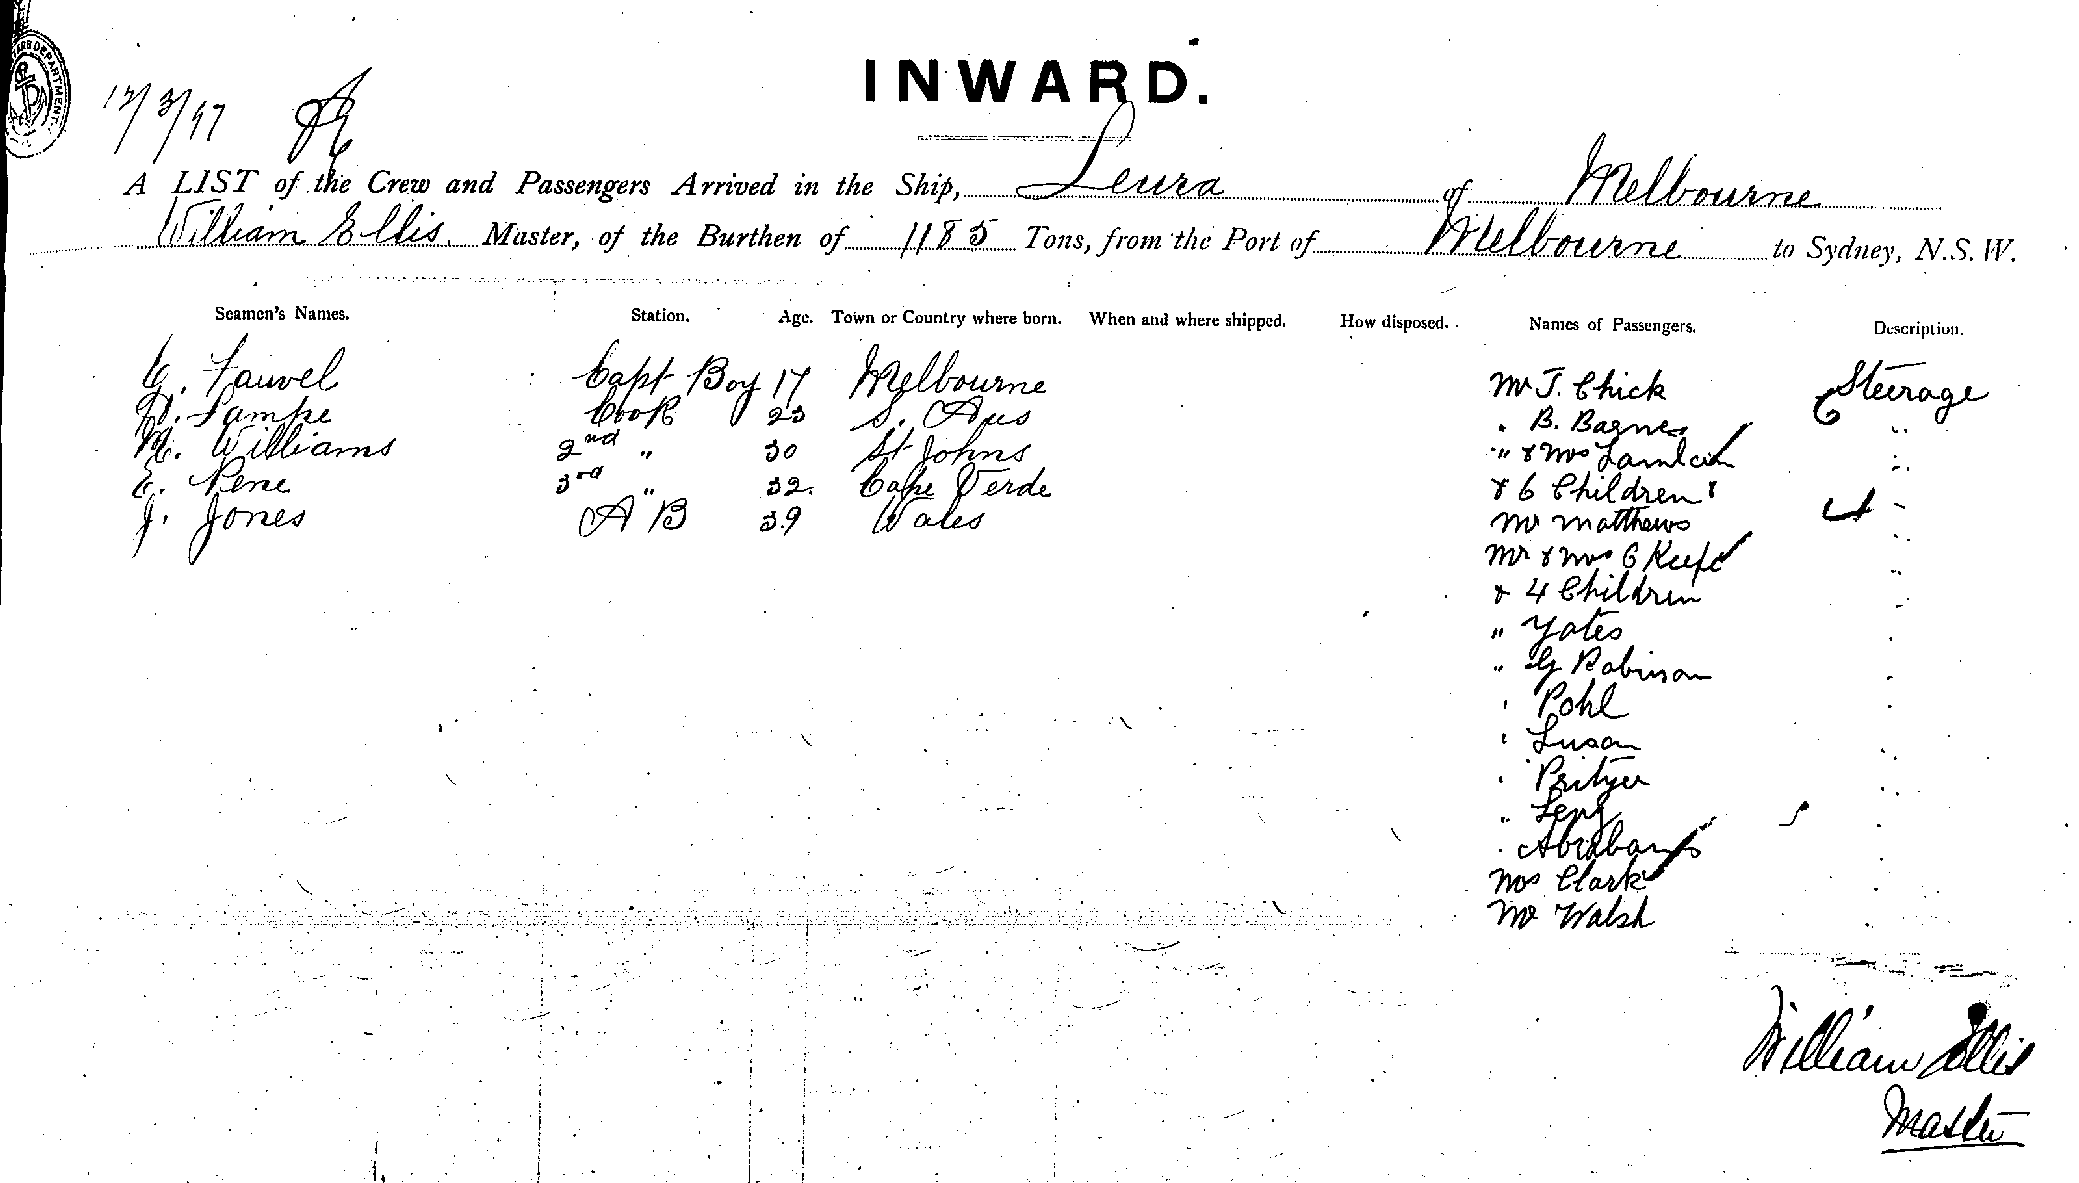 INWARD.
12/3/97
A LIST of the Crew and Passengers Arrived in the Ship, Leura of Melbourne
William Ellis. Master, of the Burthen of 1185 Tons, from the Port of Melbourne to Sydney, N.S.W.
Seamen's Names. Station. Age. Town or Country where born. When and where shipped. How disposed. Names of Passengers. Description.
C. Fauvel Capt Boy 17 Melbourne Mr J. Chick Steerage
Lampe Cook 23 S. Aus " B. Barnes "
Williams 2nd " 30 St Johns " & Mrs "
E. Pene 3rd " 32. Cape Verde & 6 Children "
J. Jones A B 39 Wales Mr Matthews "
Mr & Mrs O Keefe "
& 4 Children "
" Yates "
" G Robinson "
" Pohl "
" Luson "
" "
" "
" Abrahams "
Mrs Clark "
Mr Walsh "
William Ellis
Master